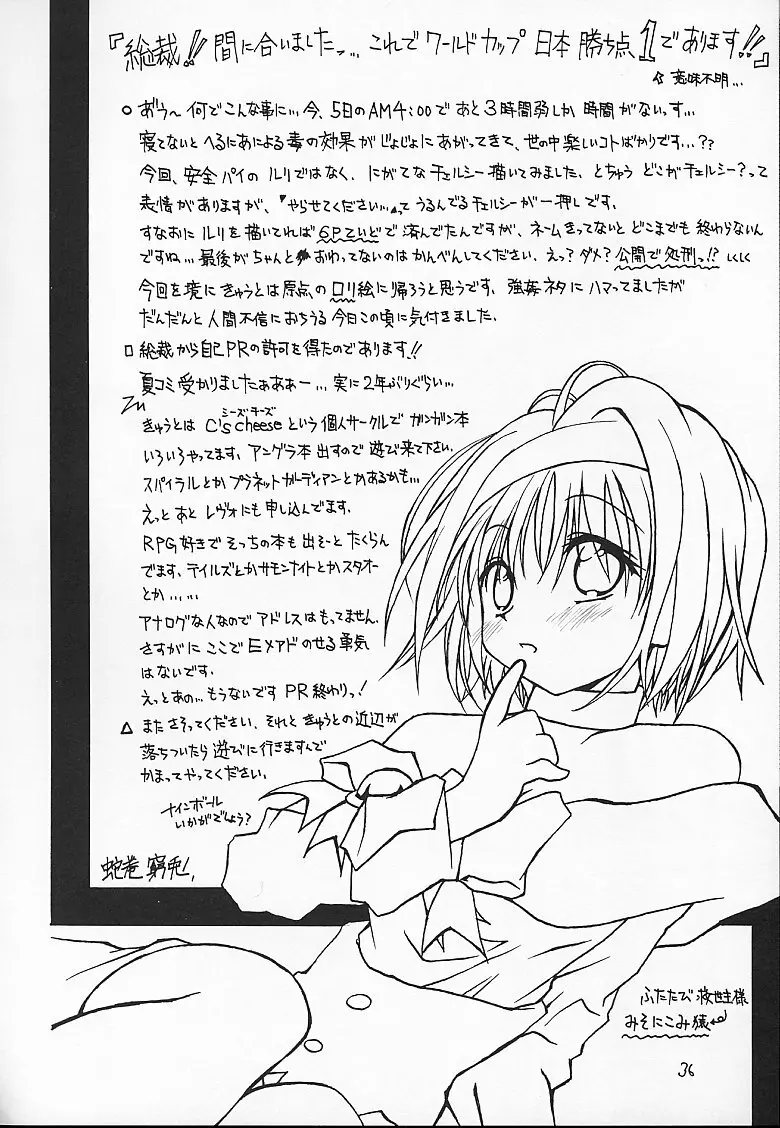 『総裁!!間に合いましたっ... これでワールドカップ 日本 勝ち点1であります!!』
意味不明...
○ おうう〜 何でこんな事に... 今、5日のAM4:00で あと3時間弱しか 時間がないっす...
寝てないと へるにあによる毒の効果が じょじょに あがってきて、世の中 楽しいコトばかりです...??
今回、安全パイの ルリではなく、にがてな チェルシー描いてみました、とちゅう どこがチェルシー?って
表情がありますが、『やらせてください...』って うるんでる チェルシーが 一押しです。
すなおに ルリを 描いてれば 6Pていどで 済んでたんですが、ネームきってないと どこまでも 終わらないん
ですね... 最後が ちゃんと おわってないのは かんべんしてください、えっ?ダメ?公開で処刑っ!?しくしく
今回を境に きゅうとは 原点の ロリ絵に帰ろうと思うです、強姦ネタに ハマってましたが
だんだんと 人間不信におちうる 今日この頃に 気付きました、
□ 総裁から 自己PRの許可を得たのであります!!
夏コミ 受かりましたぁあぁー... 実に 2年ぶりぐらい...
きゅうとは C's cheese という 個人サークルで ガンガン本
シーズ・チーズ
いろいろやってます、アングラ本 出すので 遊び来て下さい、
スパイラルとか プラネットガーディアンとかあるかも...
えっと あと レヴォにも 申し込んでます、
RPG好きで そっちの本も 出そーと たくらん
でます、テイルズとか サモンナイトとか スタオー
とか......
アナログな人なので アドレスは もってません、
さすがに ここで Eメアド のせる 勇気
はないです、
えっと あの... もうないです PR終わりっ!
△ また さそってください、それと きゅうとの近辺が
落ちついたら 遊びに行きますんで
かまってやってください。
ナインボール
いかがでしょう?
蛇巻 窮兎、
ふたたび 救世主様
みそにこみ猿
36